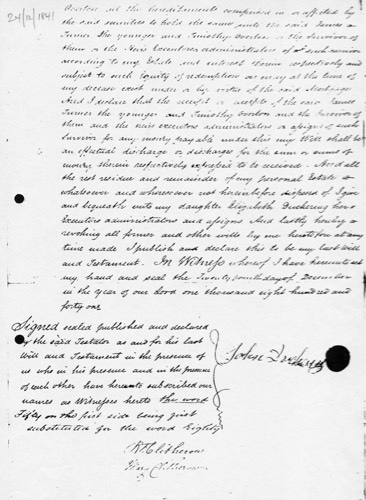 24/12/1841
Overton all the hereditaments comprised in or affected by
the said securities to hold the same unto the said James
Turner the younger and Timothy Overton or the survivor of
them or the Heirs Executors administrators of such survivor
according to my Estate and interest therein respectively and
subject to such Equity of redemption as may at the time of
my decease exist under or by virtue of the said Mortgage
And I declare that the receipt or receipts of the said James
Turner the younger and Timothy Overton and the survivor of
them and the heirs executors administrators or assigns of such
Survivor for any money payable under this my Will shall be
an effectual discharge or discharges for the sum or sums of
money therein respectively expressed to be received. And all
the rest residue and remainder of my personal Estate
whatsoever and wheresoever not hereinbefore disposed of I give
and bequeath unto my daughter Elizabeth Duckering her
Executors administrators and assigns And lastly hereby
revoking all former and other wills by me heretofore at any
time made I publish and declare this to be my last will
and Testament. In Witness whereof I have hereunto set
my hand and seal the Twenty fourth day of December
in the year of our Lord one thousand eight hundred and
forty one
Signed sealed published and declared
by the said Testator as and for his last
Will and Testament in the presence of
us who in his presence and in the presence
of each other have hereunto subscribed our
names as Witnesses hereto the word
Fifty on the first side being first
substituted for the word Eighty
John Duckering